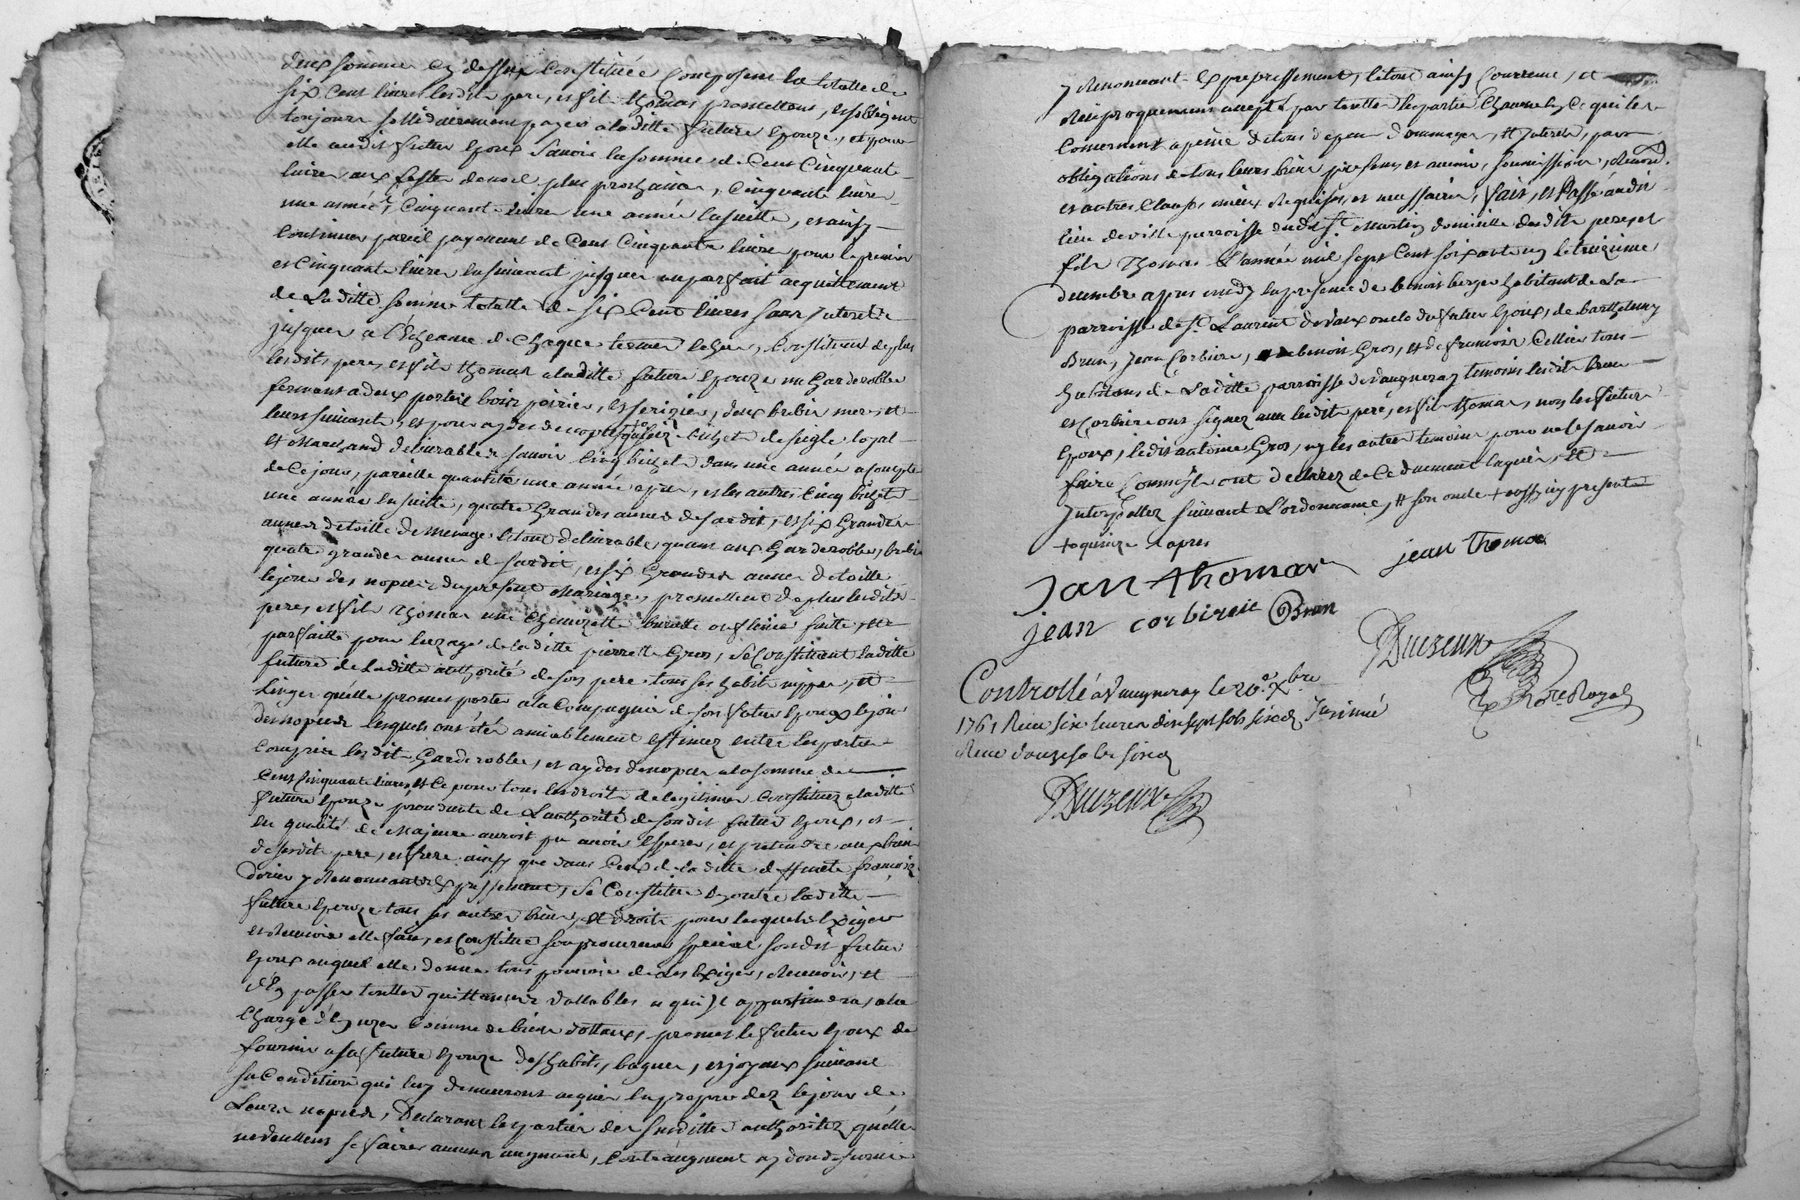 deux sommes cy dessus constituée composent la totalle de
six cent livres lesdits pere, et fil thomas promettent, et s'obligent
toujours sollidairement payer a laditte future epouze, et pour
elle audit futur epoux savoir la somme de cent cinquante
livres aux festes de noel plus prochaines, cinquante livres
une année, cinquante livres une année ensuitte, et ainsy
continuer pareil payement de cent cinquante livres pour le premier
et cinquante livres en suivant jusques au parfait acquittement
de laditte somme totalle de six cent livres sans interets
jusques a l'echeance de chaque terme echeu, constituent de plus
lesdits pere, et fils thomas a laditte future epouze un garderobbe
fermant a deux portes bois poirier, et serizier, deux brebis mere, et
leurs suivants, et pour aydes de nopces quinze bichet de seigle loyal
et marchand delivrables savoir cinq bichet dans une année a compter
de ce jour, pareille quantité une année apres, et les autres cinq bichet
une année ensuitte, quatre grandes aunes de sardit, et six grandes
aunes de toille de menage le tout delivrable, quant aux garderobbe, brebis
quatre grandes aunes de sardit, et six grandes aunes de toille
le jour des nopces du present mariage, promettent de plus lesdits
pere, et fils thomas une faitte, et
parfaitte pour l'uzage de laditte pierrette Gros, se constituent laditte
future de laditte authorité de son pere tous ses habit nippes, et
linges qu'elle promet porter a la compagnie de son futur epoux le jour
des nopces lesquels ont été amiablement estimez entre les parties
compris lesdits garderobbe, et aydes de nopces a la somme de
cent cinquante livres, et ce pour tous les droits de legitime constituez a laditte
future epouze procedante de l'authorité de sondit futur epoux, et
en qualité de majeure auroit pu avoir esperer, et pretendre aux biens
de sesdits pere, et frere ainsy que dans ceux de laditte deffunte françoise
y renonceant expressement, se constitue en outre laditte
future epouze tous ses autres biens, et droits pour lesquels exiger
et recevoir elle fait, et constitue son procureur special sondit futur
epoux auquel elle donne tous pouvoir de les exiger, recevoir, et
d'en passer touttes quittances vallables a qui il appartiendra, a la
charge d'en uzer comme de biens dottaux, promet le futur epoux de
fournir a sa future epouze des habits, bagues, et joyaux suivant
sa condition qui luy demeureront acquis en propre dez le jour de
leurs nopces, declarant les parties de susditte authoritez qu'elles
ne veullent se faire aucun augment, contraugment ny don de survie
y renonceant expressement, le tout ainsy convenu, et
reciproquement accepté par touttes les parties chacune en ce qui les
concernent a peine de tous depens dommages, et interets, par
obligations de tous leurs biens presens, et avenir, soumissions, renon.
et autres clauses mieux requises, et necessaires, fait, et passé audit
lieu de ville parroisse dudit St martin domicille desdits pere, et
fils thomas l'année mil sept cent soixante un le treizieme
decembre apres midy en presence de benoit berger habitant de la
parroisse de St Laurent de vaux oncle du futur epoux, de barthelemy
Brun, jean Corbiere, benoit Gros, et de françois Cellier tous
habitans de laditte parroisse de vaugneray temoins lesdits Brun
et Corbiere ont signez avec lesdits pere, et fil thomas, non les futurs
epoux, ledit antoine Gros, ny les autres temoins pour ne le savoir
faire comm'ils ont declarez de ce duement enquis, et
interpellez suivant l'ordonnance, # son oncle + aussy icy presents
+ a quinze apres
jan thomas jean thomas
jean corbiere Brun
Duzeux
Nore Royal
Controllé a Vaugneray le 20e Xbre
1761 Reçu six livres dix sept sols six d insinué
Reçu douze sols six d
Duzeux